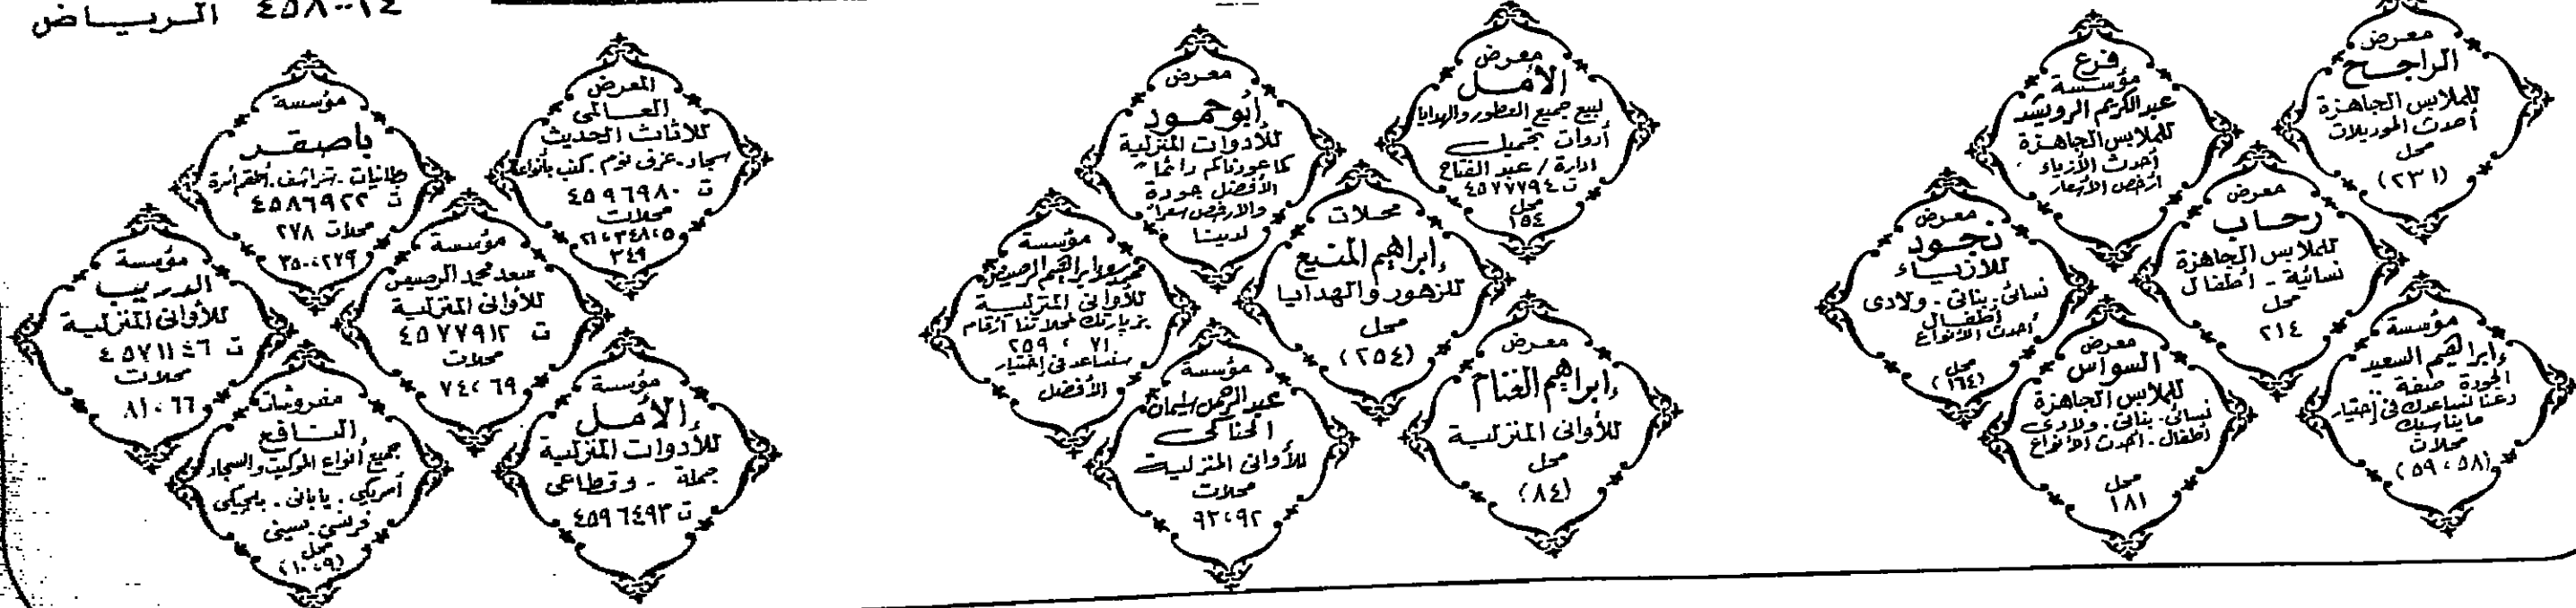 الرياض ٤٥٨٠٠١٤
معرض
الراجح
للملابس الجاهزة
أحدث الموديلات
محل
(٢٣١)
فرع
مؤسسة
عبدالكريم الرويشد
للملابس الجاهزة
أحدث الأزياء
أرخص الأسعار
معرض
رحاب
للملابس الجاهزة
نسائية - أطفال
محل
٢١٤
معرض
نجود
للأزياء
نسائى . بناتى . ولادى
أطفال
أحدث الأنواع
محل
(١٦٤)
مؤسسة
إبراهيم السعيد
الجودة صفة
دعنا نساعدك فى إختيار
ما يناسبك
محلات
(٥٨ ، ٥٩)
معرض
السواس
للملابس الجاهزة
نسائى . بناتى . ولادى
أطفال . أحدث الأنواع
محل
١٨١
معرض
الأمل
لبيع جميع العطور والهدايا
أدوات تجميل
ادارة / عبد الفتاح
ت ٤٥٧٧٧٩٤
محل
١٥٤
معرض
أبو حمود
للأدوات المنزلية
كما عودناكم دائما"
الأفضل جودة
والأرخص سعرا"
لدينا
محلات
إبراهيم المنيع
للزهور والهدايا
محل
(٢٥٤)
مؤسسة
إبراهيم الرصيص
للأوانى المنزلية
بزيارتك لمحلاتنا أرقام
٧١ ، ٢٥٩
سنساعد فى إختيار
الأفضل
معرض
إبراهيم الغنام
للأوانى المنزلية
محل
(٨٤)
مؤسسة
عبد الرحمن سليمان
الحناكى
للأوانى المنزلية
محلات
٩٢ ، ٩٣
المعرض
العالمى
للأثاث الحديث
سجاد . غرف نوم . كنب بأنواعة
ت ٤٥٩٦٩٨٠
محلات
٣٤٩
مؤسسة
باصقر
بطانيات . شراشف . أطقم أسرة
ت ٤٥٨٦٩٢٢
محلات ٢٧٨
٢٧٩ ، ٣٥٠
مؤسسة
سعد محمد الرصيص
للأوانى المنزلية
ت ٤٥٧٧٩١٢
محلات
٦٩ ، ٧٤
مؤسسة
الدريب
للأوانى المنزلية
ت ٤٥٧١١٤٦
محلات
٦٦ ، ٨١
مؤسسة
الأمل
للأدوات المنزلية
جملة - وقطاعى
ت ٤٥٩٦٤٩٣
مفروشات
النافع
جميع أنواع الموكيت والسجاد
أمريكى . يابانى . بلجيكى
فرنسى . صينى
محل
(٩ ، ١٠)